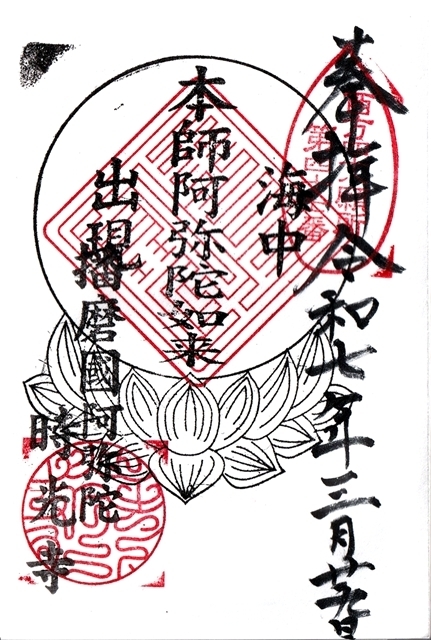 奉拝 令和七年三月
海中
本師阿弥陀如来
出現
播磨國阿弥陀
時光寺